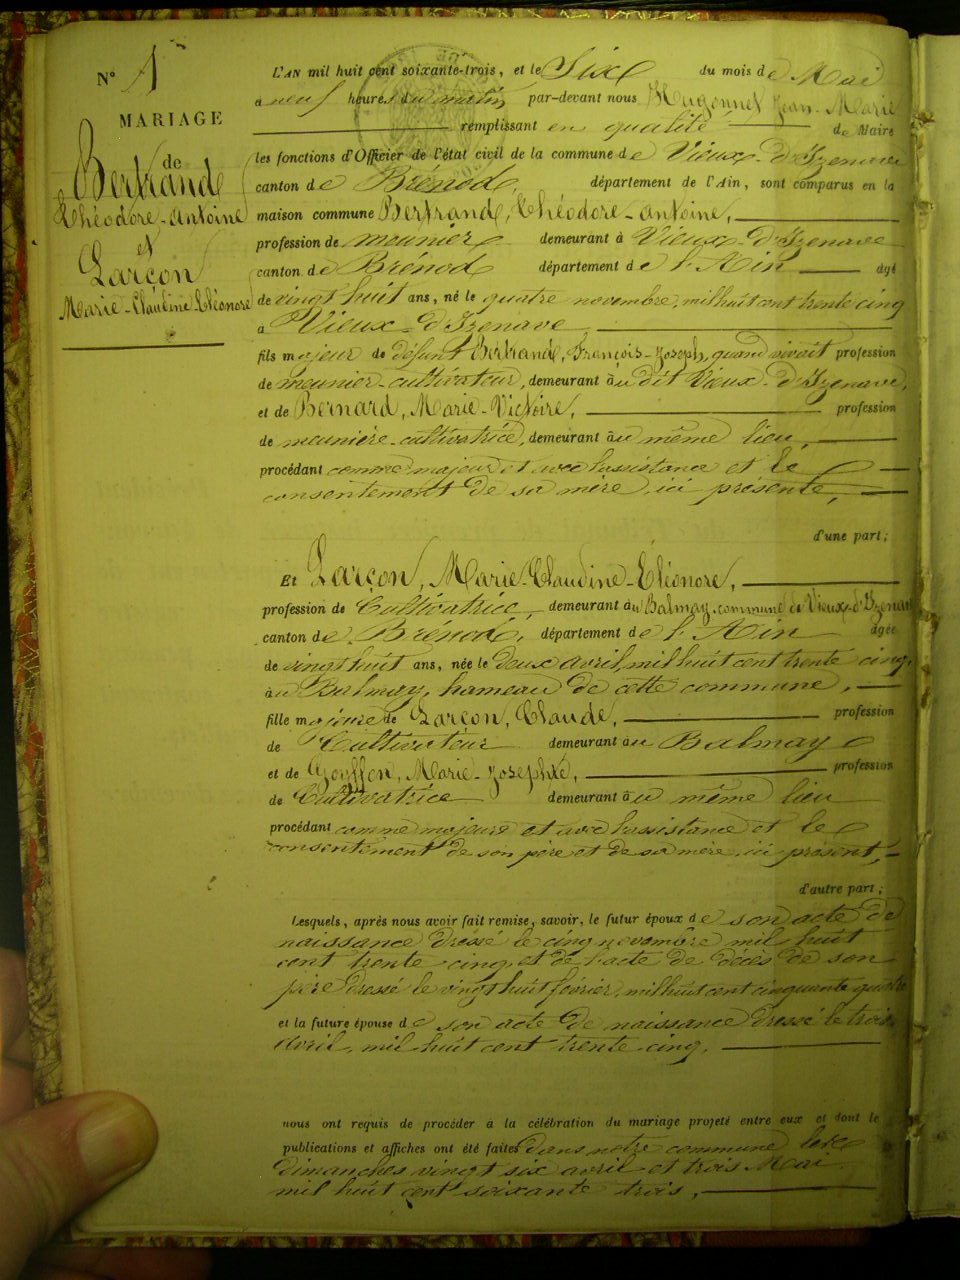 N° 1
MARIAGE
de
Bertrand
Théodore-Antoine
et
Garçon
Marie-Claudine-Eléonore
L'AN mil huit cent soixante-trois, et le Six du mois de Mai
à neuf heures du matin par-devant nous Hugonnet Jean-Marie
remplissant en qualité de Maire
les fonctions d'Officier de l'état civil de la commune de Vieux-d'Izenave
canton de Brénod, département de l'Ain, sont comparus en la
maison commune Bertrand, Théodore-antoine,
profession de meunier demeurant à Vieux-d'Izenave
canton de Brénod département de l'Ain âgé
de vingt huit ans, né le quatre novembre, mil huit cent trente cinq
à Vieux-d'Izenave
fils majeur de défunt Bertrand, François-Joseph, quand vivait profession
de meunier-cultivateur, demeurant au dit Vieux-d'Izenave,
et de Bernard, Marie-Victoire, profession
de meunière-cultivatrice, demeurant au même lieu,
procédant comme majeur et avec l'assistance et le
consentement de sa mère, ici présente,
d'une part;
Et Garçon, Marie-Claudine-Eléonore,
profession de Cultivatrice, demeurant au Balmay, commune de Vieux-d'Izenave
canton de Brénod, département de l'Ain âgée
de vingt huit ans, née le deux avril mil huit cent trente cinq,
au Balmay, hameau de cette commune,
fille majeure de Garçon, Claude, profession
de Cultivateur demeurant au Balmay
et de Gouffon, Marie-Josephte, profession
de Cultivatrice demeurant au même lieu
procédant comme majeure et avec l'assistance et le
consentement de son père et de sa mère, ici présent,
d'autre part;
Lesquels, après nous avoir fait remise, savoir, le futur époux de son acte de
naissance dressé le cinq novembre mil huit
cent trente cinq, et de l'acte de décès de son
père dressé le vingt huit février, mil huit cent cinquante quatre
et la future épouse de son acte de naissance dressé le trois
avril, mil huit cent trente cinq,
nous ont requis de procéder à la célébration du mariage projeté entre eux et dont les
publications et affiches ont été faites dans notre commune les
dimanches vingt six avril et trois Mai
mil huit cent soixante trois,